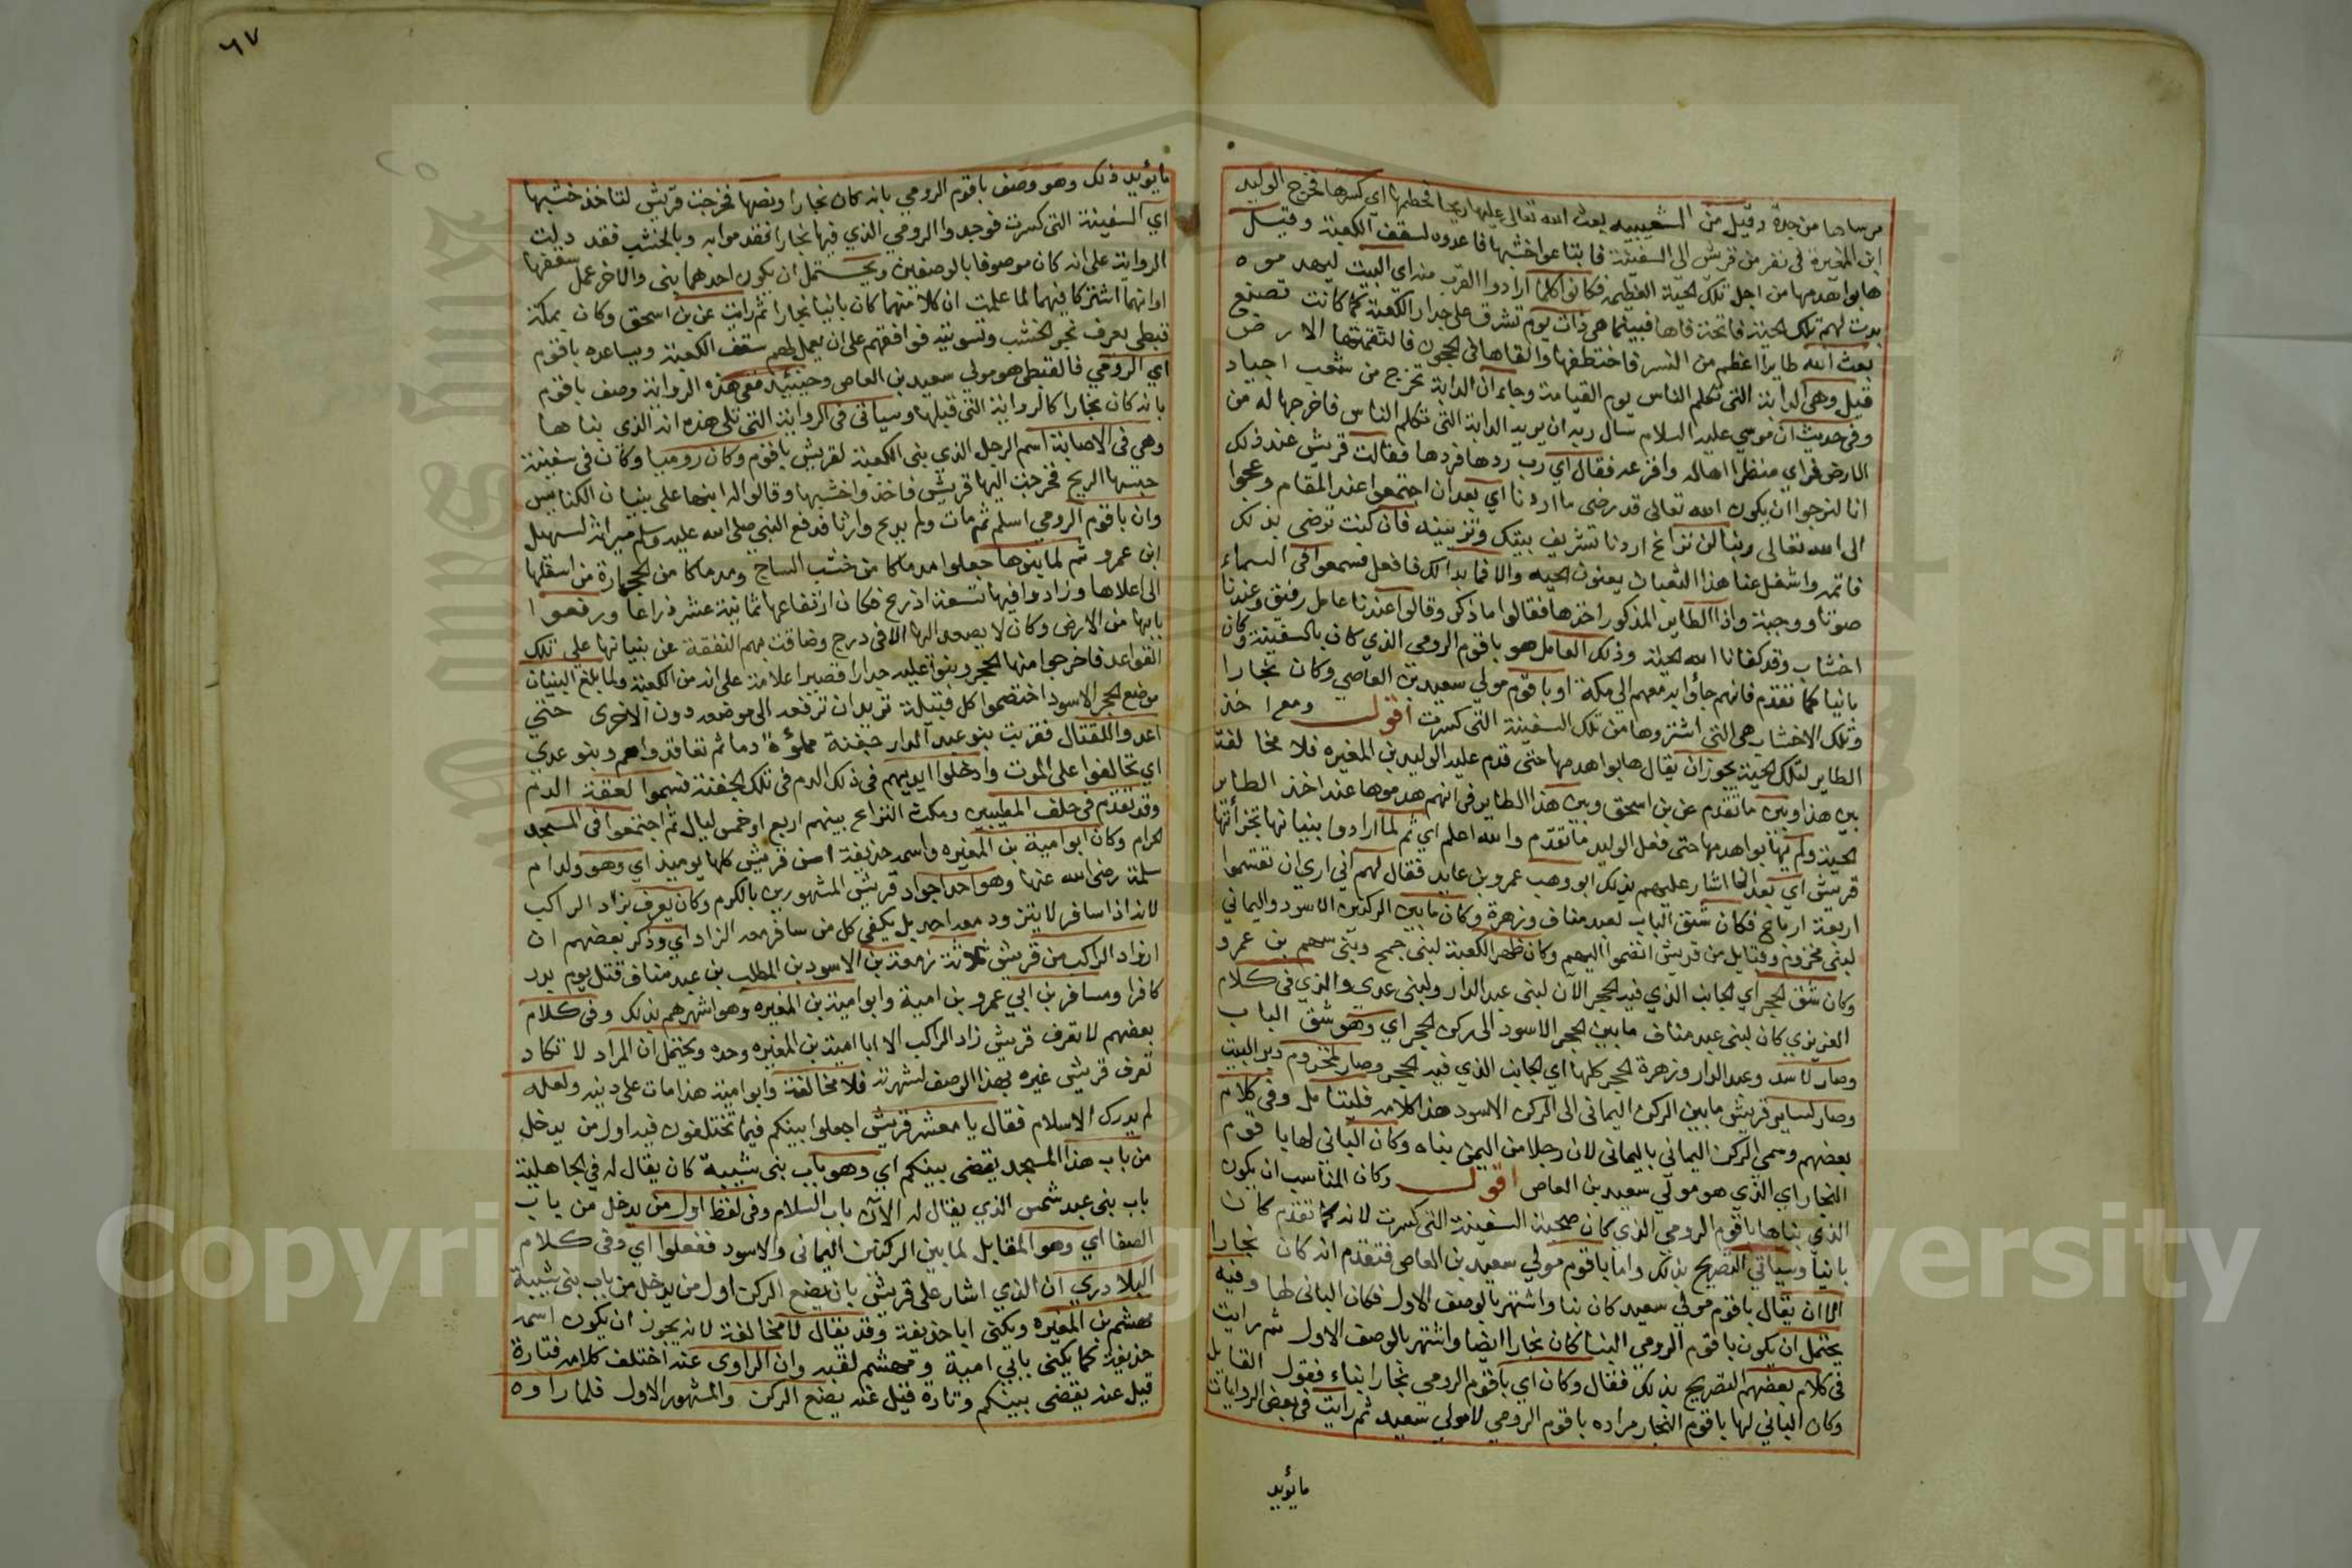 ٦٧
مرساها من جدة وقيل من الشعيبيه بعث الله تعالى عليها ريحا فحطمها اي كسرها فخرج الوليد
ابن المغيرة في نفر من قريش الى السفينة فابتاعوا خشبها فاعدوه لسقف الكعبة وقيل
هابوا هدمها من اجل تلك الحية العظيمه فكانوا كلما ارادوا القرب منه اي البيت ليهدموه
بدت لهم تلك الحية فاتحة فاها فبينما هي ذات يوم تشرق على جدار الكعبة كما كانت تصنع
بعث الله طايرا اعظم من النسر فاختطفها والقاها في الحجون فالتقمتها الارض
قيل وهي الدابة التي تكلم الناس يوم القيامة وجاء ان الدابة تخرج من شعب اجياد
وفي حديث ان موسى عليه السلام سال ربه ان يريه الدابة التي تكلم الناس فاخرجها له من
الارض فراي منظرا هاله وافزعه فقال اي رب ردها فردها فقالت قريش عند ذلك
انا لنرجوا ان يكون الله تعالى قد رضى ما اردنا اي بعد ان اجتمعوا عند المقام وعجوا
الى الله تعالى ربنا لن نراع اردنا تشريف بيتك وتزيينه فان كنت ترضى بذلك
فاتمه واشغل عنا هذا الثعبان يعنون الحيه والا فما بدا لك فافعل فسمعوا في السماء
صوتا ووجبة واذا الطاير المذكور اخذها فقالوا ما ذكر وقالوا عندنا عامل رفيق وعندنا
اخشاب وقد كفانا الله الحية وذلك العامل هو باقوم الرومي الذي كان بالسفينة وكان
بانيا كما تقدم فانهم جاؤا به معهم الى مكة او باقوم مولي سعيد بن العاصي وكان نجارا
وتلك الاخشاب هي التي اشتروها من تلك السفينة التي كسرت اقول ومع اخذ
الطاير لتلك الحية يجوز ان يقال هابوا هدمها حتى قدم عليه الوليد بن المغيره فلا مخالفة
بين هذا وبين ما تقدم عن بن اسحق وبين هذا الطاير في انهم هدموها عند اخذ الطاير
الحية ولم يهابوا هدمها حتى فعل الوليد ما تقدم والله اعلم اي ثم لما ارادوا بنيانها تجزأتها
قريش اي بعد انما اشار عليهم بذلك ابو وهب عمرو بن عايد فقال لهم اني ارى ان تقتسموا
اربعة ارباع فكان شق الباب لعبد مناف وزهرة وكان ما بين الركنين الاسود واليماني
لبني مخزوم وقبايل من قريش انضموا اليهم وكان ظهر الكعبة لبني جمح وبني سهم بن عمرو
وكان شق الحجر اي الجانب الذي فيه الحجر الآن لبني عبد الدار ولبني عدى والذي في كلام
العزيزي كان لبني عبد مناف ما بين الحجر الاسود الى ركن الحجر اي وهو شق الباب
وصار لاسد وعبد الدار وزهرة الحجر كلها اي الجانب الذي فيه الحجر وصار لمخزوم دبر البيت
وصار لساير قريش ما بين الركن اليماني الى الركن الاسود هذا كلامه فليتامل وفي كلام
بعضهم وسمي الركن اليماني باليماني لان رجلا من اليمن بناه وكان الباني لها باقوم
النجار اي الذي هو مولى سعيد بن العاص اقول وكان المناسب ان يكون
الذي بناها باقوم الرومي الذي كان صحبة السفينة التي كسرت لانه كما تقدم كان
بانيا وسياتي التصريح بذلك واما باقوم مولي سعيد بن العاص فتقدم انه كان نجارا
الا ان يقال باقوم مولي سعيد كان بنا واشتهر بالوصف الاول فكان الباني لها وفيه
يحتمل ان يكون باقوم الرومي البنا كان نجارا ايضا واشتهر بالوصف الاول ثم رايت
في كلام بعضهم التصريح بذلك فقال وكان اي باقوم الرومي نجارا بناء فقول القايل
وكان الباني لها باقوم النجار مراده باقوم الرومي لا مولي سعيد ثم رايت في بعض الروايات
مايؤيد
مايؤيد ذلك وهو وصف باقوم الرومي بانه كان نجارا ونصها فخرجت قريش لتاخذ خشبها
اي السفينة التي كسرت فوجدوا الرومي الذي فيها نجارا فقدموا به وبالخشب فقد دلت
الرواية على انه كان موصوفا بالوصفين ويحتمل ان يكون احدهما بنى والاخر عمل سقفها
اوانهما اشتركا فيهما لما علمت ان كلا منهما كان بانيا نجارا ثم رايت عن بن اسحق وكان بمكة
قبطى يعرف نجر الخشب وتسويته فوافقهم على ان يعمل لهم سقف الكعبة ويساعده باقوم
اي الرومي فالقبطى هو مولي سعيد بن العاص وحينيذ ففي هذه الرواية وصف باقوم
بانه كان نجارا كالرواية التي قبلها وسياتى في الرواية التي تلى هذه انه الذي بناها
وهي في الاصابة اسم الرجل الذي بنى الكعبة لقريش باقوم وكان روميا وكان في سفينة
حبسها الريح فخرجت اليها قريش فاخذوا خشبها وقالوا له ابنها على بنيان الكنايس
وان باقوم الرومي اسلم ثم مات ولم يدع وارثا فدفع النبي صلى الله عليه وسلم ميراثه لسهيل
ابن عمرو ثم لما بنوها جعلوا مدماكا من خشب الساج ومدماكا من الحجارة من اسفلها
الى اعلاها وزادوا فيها تسعة اذرع فكان ارتفاعها ثمانية عشر ذراعا ورفعوا
بابها من الارض وكان لا يصعد اليها الا في درج وضاقت بهم النفقة عن بنيانها على تلك
القواعد فاخرجوا منها الحجر وبنوا عليه جدارا قصيرا علامة على انه من الكعبة ولما بلغ البنيان
موضع الحجر الاسود اختصموا كل قبيلة تريد ان ترفعه الى موضعه دون الاخرى حتى
اعدوا للقتال فقربت بنو عبد الدار جفنة مملؤة دما ثم تعاقدوا هم وبنو عدي
اي تحالفوا على الموت وادخلوا ايديهم في ذلك الدم في تلك الجفنة فسموا لعقة الدم
وقد تقدم في حلف المطيبين ومكث النزاع بينهم اربع او خمس ليال ثم اجتمعوا في المسجد
الحرام وكان ابو امية بن المغيره واسمه حذيفة اسن قريش كلها يوميذ اي وهو والد ام
سلمة رضى الله عنها وهو احد اجواد قريش المشهورين بالكرم وكان يعرف بزاد الراكب
لانه اذا سافر لا يتزود معه احد بل يكفي كل من سافر معه الزاد اي وذكر بعضهم ان
ازواد الراكب من قريش ثلاثة زمعة بن الاسود بن المطلب بن عبد مناف قتل يوم بدر
كافرا ومسافر بن ابي عمرو بن امية وابو امية بن المغيره وهو اشهرهم بذلك وفي كلام
بعضهم لا تعرف قريش زاد الراكب الا ابا امية بن المغيره وحده ويحتمل ان المراد لا تكاد
تعرف قريش غيره بهذا الوصف لشهرته فلا مخالفة وابو امية هذا مات على دينه ولعله
لم يدرك الاسلام فقال يا معشر قريش اجعلوا بينكم فيما تختلفون فيه اول من يدخل
من باب هذا المسجد يقضى بينكم اي وهو باب بني شيبة كان يقال له في الجاهلية
باب بني عبد شمس الذي يقال له الآن باب السلام وفي لفظ اول من يدخل من باب
الصفا اي وهو المقابل لما بين الركنين اليماني والاسود ففعلوا اي وفي كلام
البلادري ان الذي اشار على قريش بان يضع الركن اول من يدخل من باب بني شيبة
مهشم بن المغيره ويكنى ابا حذيفة وقد يقال لا مخالفة لانه يجوز ان يكون اسمه
حذيفة كما يكنى بابي امية ومهشم لقبه وان الراوى عنه اختلف كلامه فتارة
قيل عنه يقضى بينكم وتارة قيل عنه يضع الركن والمشهور الاول فلما راوه
Copyright © King Saud University